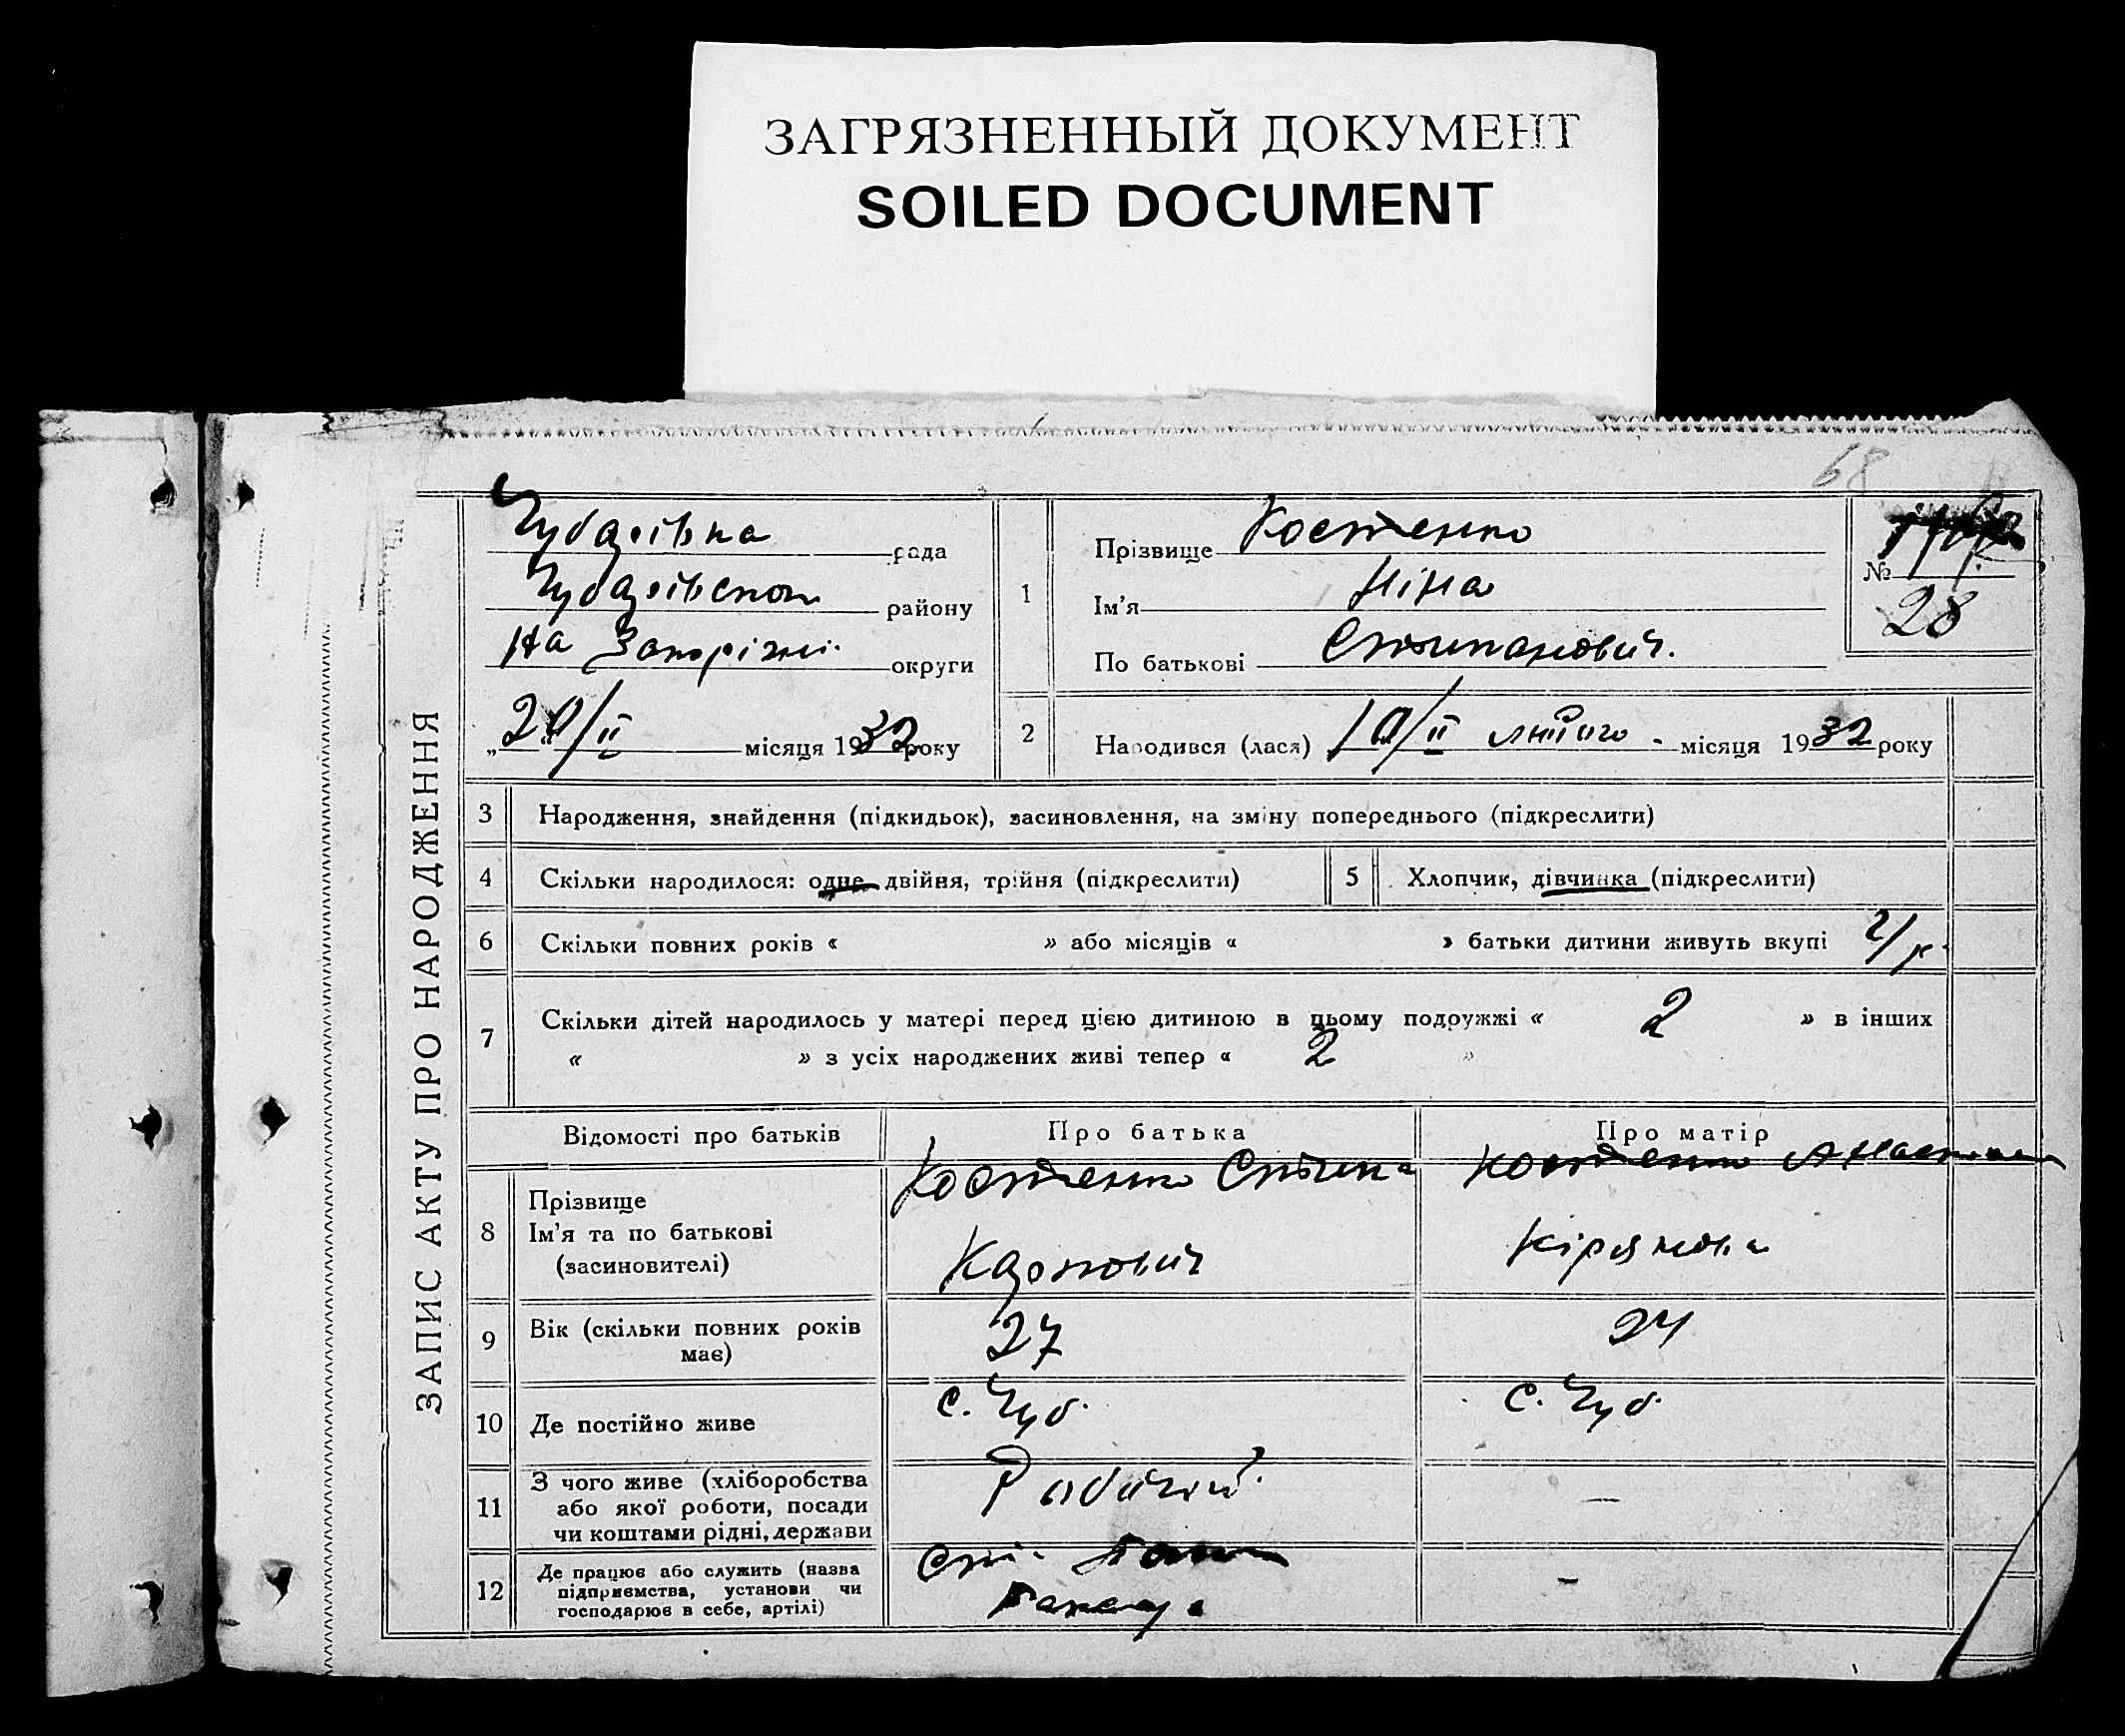 ЗАГРЯЗНЕННЫЙ ДОКУМЕНТ
SOILED DOCUMENT
68
ЗАПИС АКТУ ПРО НАРОДЖЕННЯ
Чубарівка рада
району
На Запоріжжі округи
„20/II місяця 1932 року
1
Прізвище Костенко
Ім'я Ніна
По батькові Степанович.
№
28
2
Народився (лася) 10/II лютого місяця 1932 року
3 Народження, знайдення (підкидьок), засиновлення, на зміну попереднього (підкреслити)
4 Скільки народилося: одне, двійня, трійня (підкреслити)
5 Хлопчик, дівчинка (підкреслити)
6 Скільки повних років « » або місяців « » батьки дитини живуть вкупі
7 Скільки дітей народилось у матері перед цією дитиною в цьому подружжі « 2 » в інших
« » з усіх народжених живі тепер « 2 »
Відомості про батьків
Про батька
Про матір
8
Прізвище
Ім'я та по батькові
(засиновителі)
Костенко Степан
Карпович
Костенко Анастасія
Кіряновна
9
Вік (скільки повних років
має)
27
24
10 Де постійно живе
с. Чуб.
с. Чуб.
11
З чого живе (хліборобства
або якої роботи, посади
чи коштами рідні, держави
Рабочий
—
12
Де працює або служить (назва
підприємства, установи чи
господарює в себе, артілі)
–